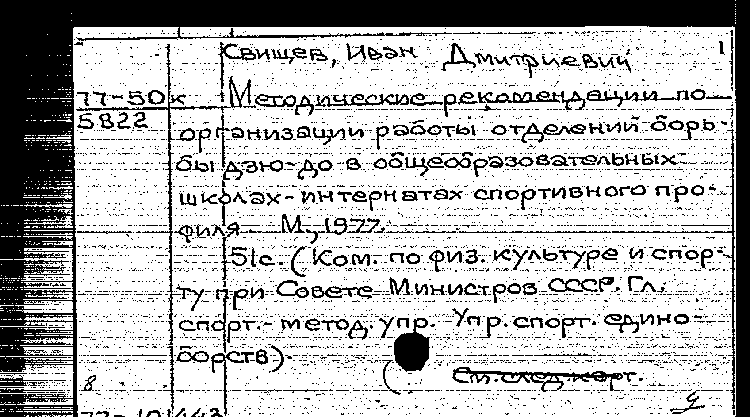 Свищев, Иван Дмитриевич 1
77-50к Методические рекомендации по
5822 организации работы отделений борь-
бы дзю-до в общеобразовательных
школах-интернатах спортивного про-
филя. М., 1977.
51с. (Ком. по физ. культуре и спор-
ту при Совете Министров СССР. Гл.
спорт.-метод. упр. Упр. спорт. едино-
борств).
8 См. след. карт.
77-101443